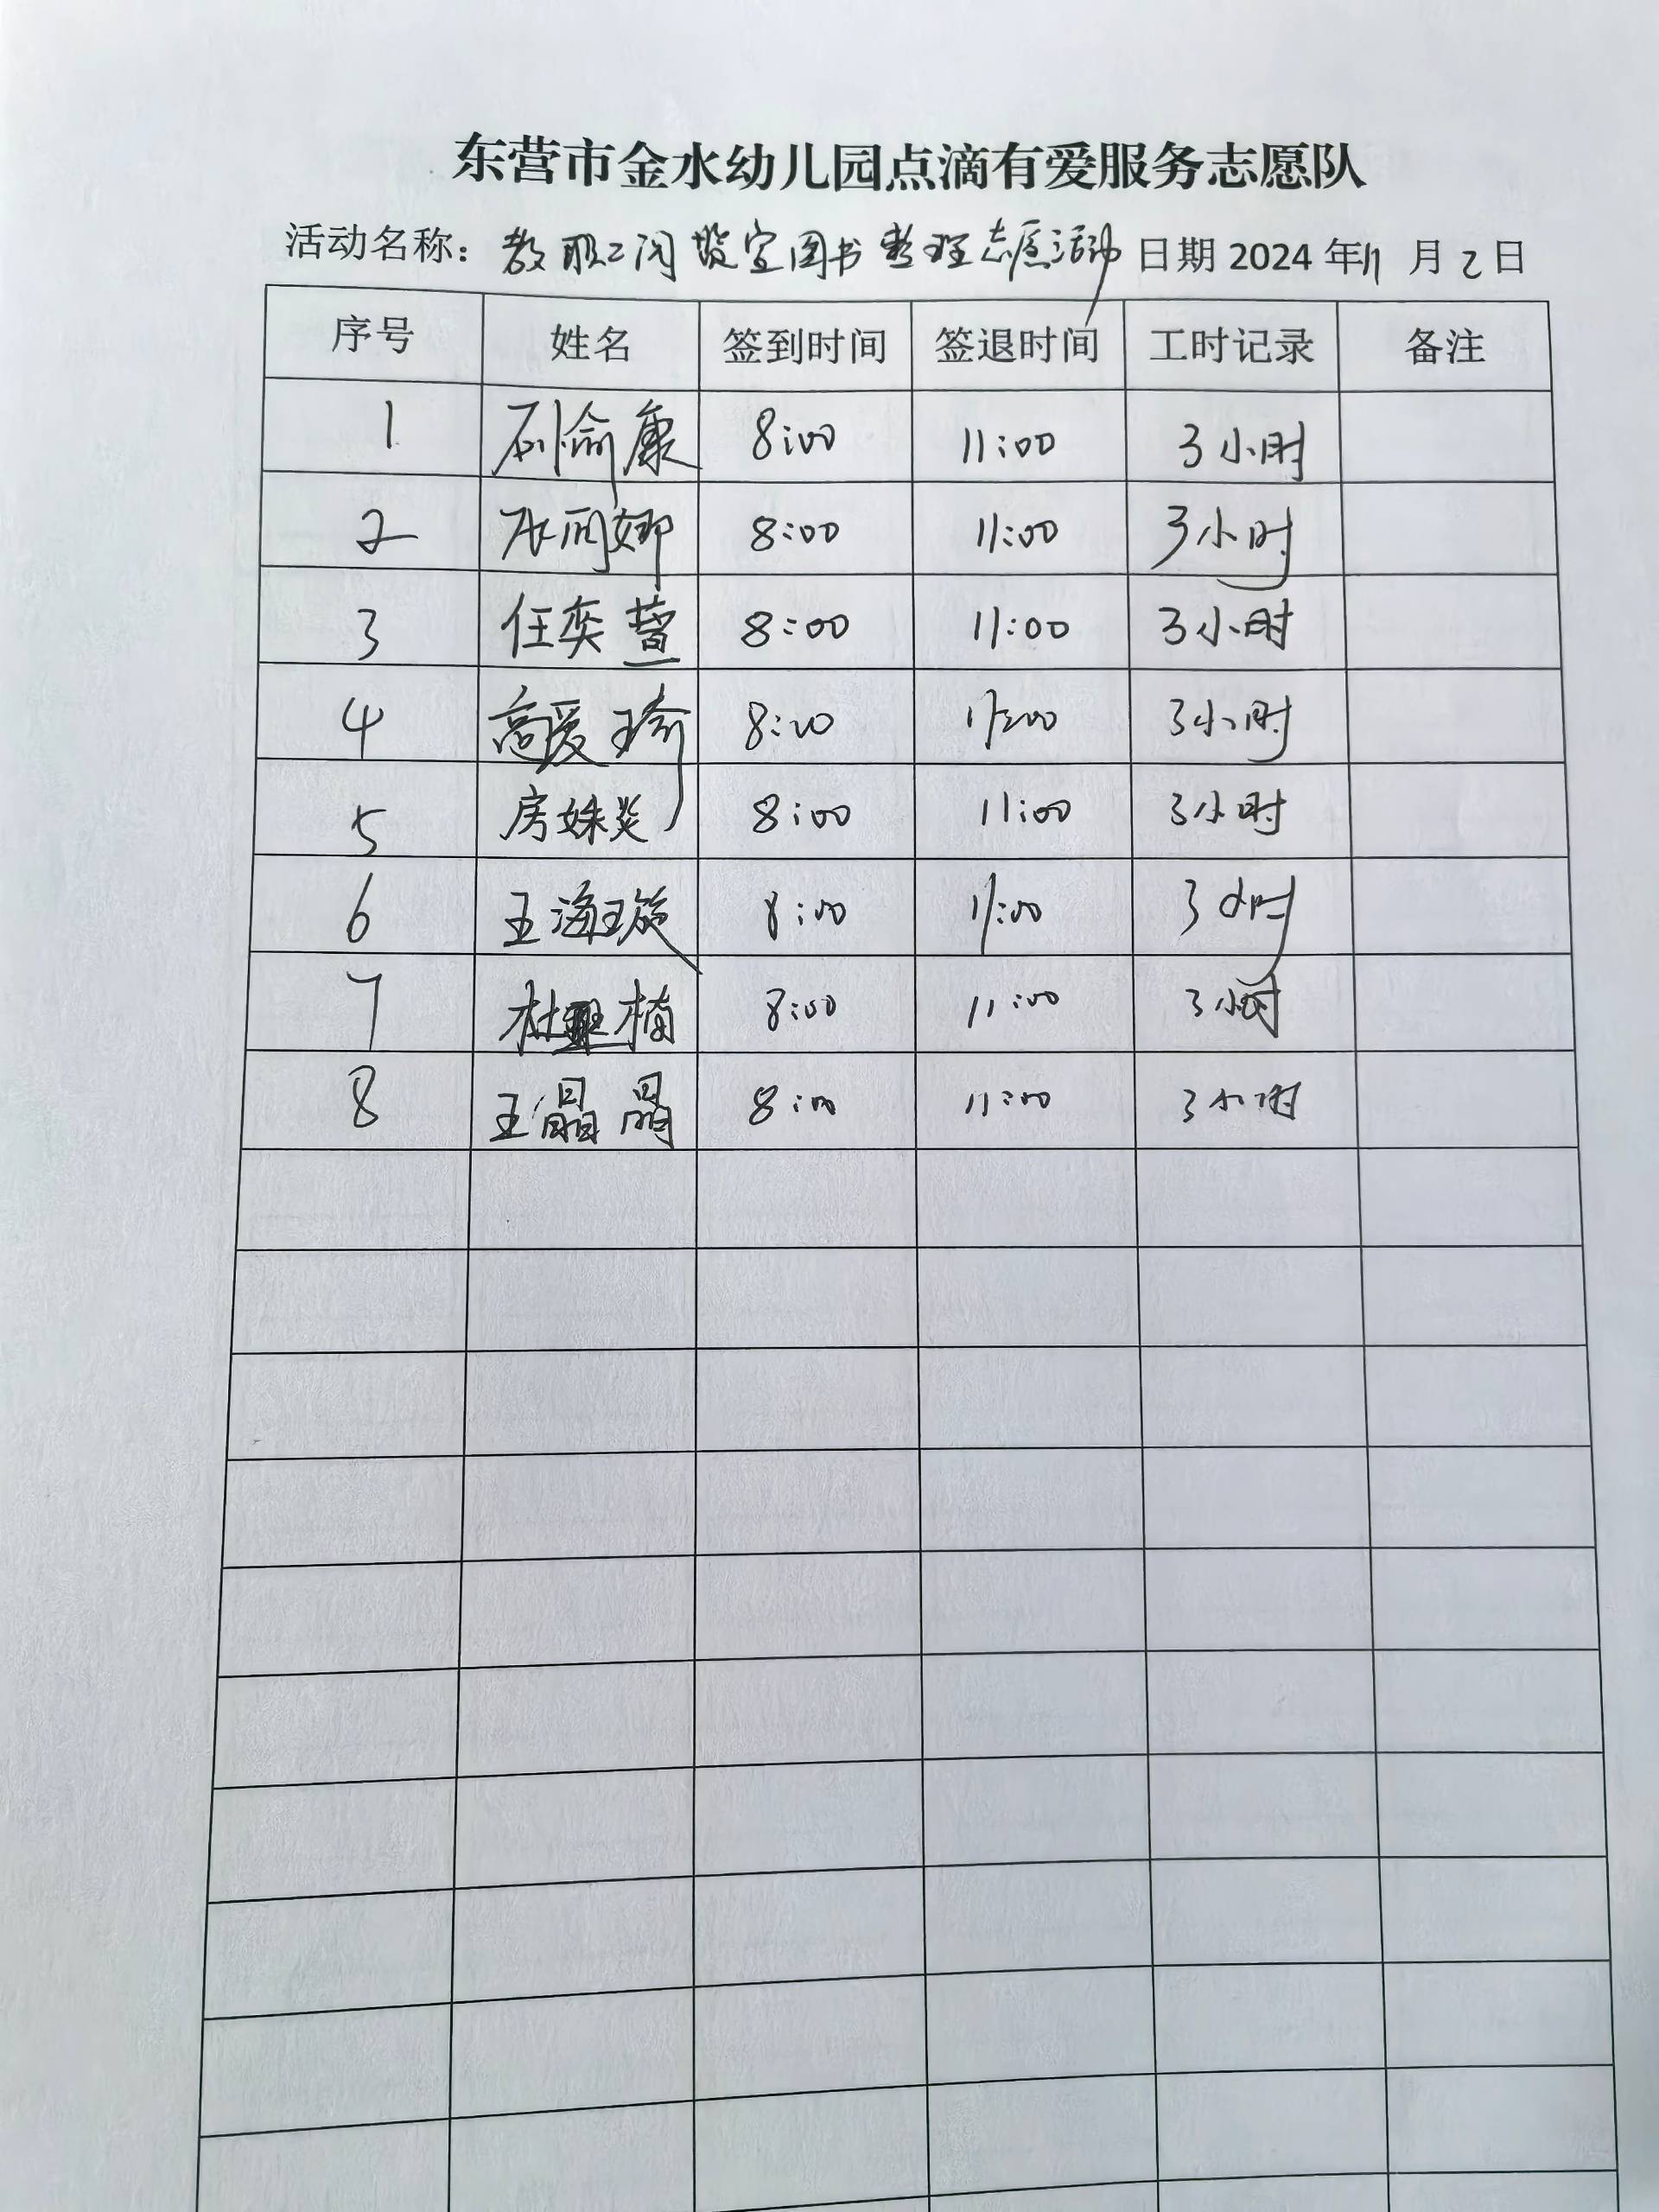 东营市金水幼儿园点滴有爱服务志愿队
活动名称：教职工阅览室图书整理志愿活动 日期 2024 年11 月 2 日
序号 姓名 签到时间 签退时间 工时记录 备注
1 康 8:00 11:00 3小时
2 娜 8:00 11:00 3小时
3 任奕萱 8:00 11:00 3小时
4 高爱琦 8:00 11:00 3小时
5 房姝 8:00 11:00 3小时
6 王海璇 8:00 11:00 3小时
7 杜 楠 8:00 11:00 3小时
8 王晶晶 8:00 11:00 3小时